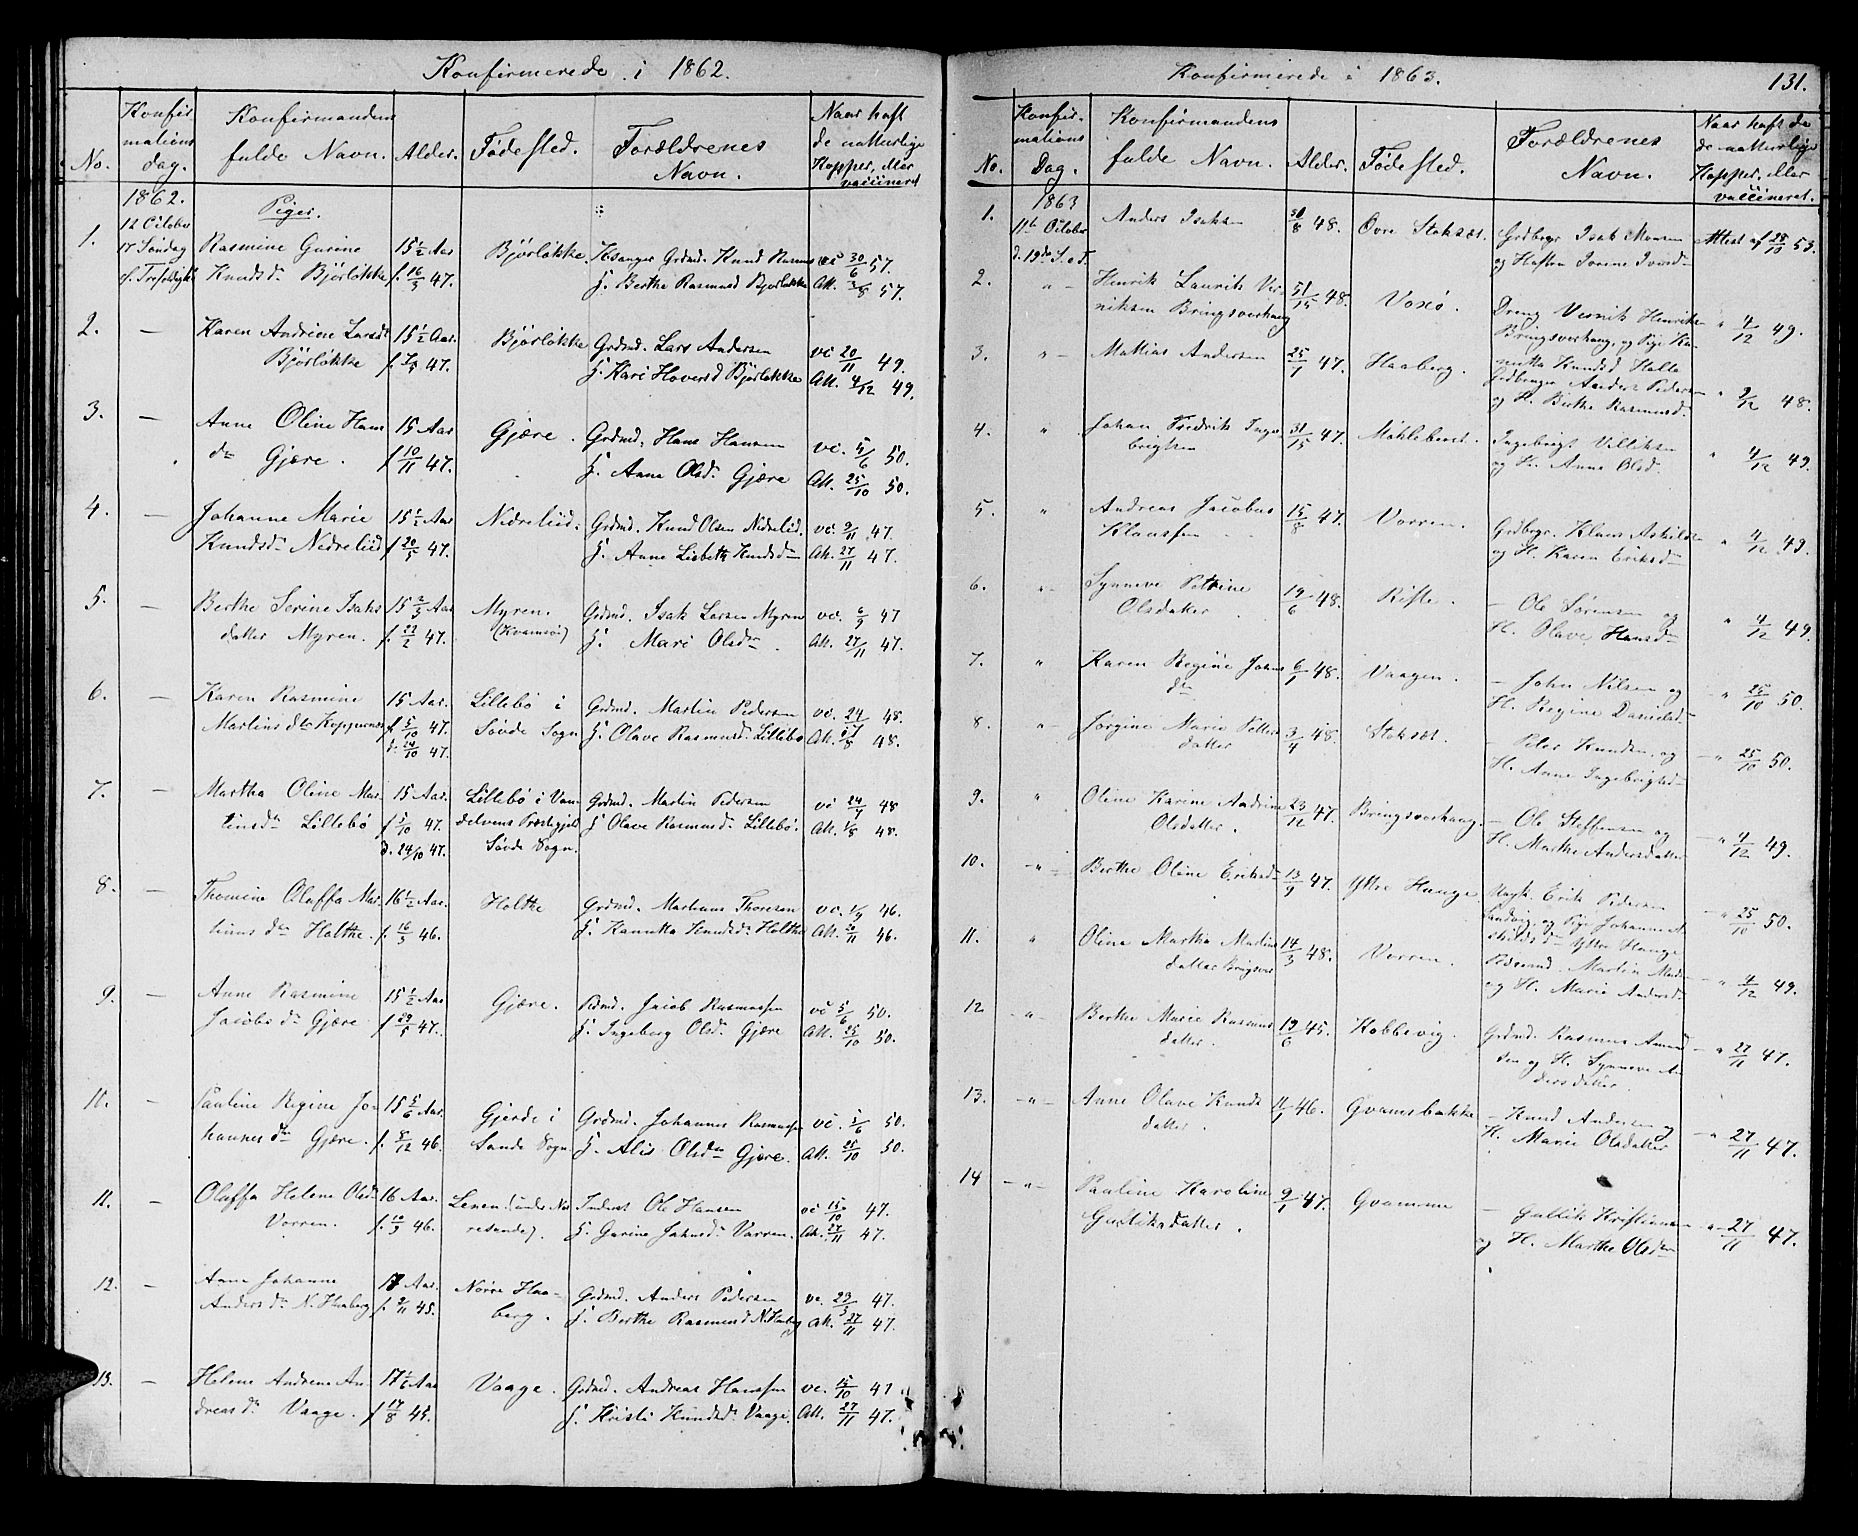 Konfirmerede i 1862.
No.
Konfir
mations
dag.
Konfirmandens
fulde Navn.
Alder.
Fødested.
Forældrenes
Navn.
Naar haft
de naturlige
Kopper, eller
vaccineret
1862.
12 October
17 Søndag
Piger.
1.
Rasmine Gurine
Knudsdr Bjørløkke
15½ Aar
f. 16/3 47.
Bjørløkke.
Grdmd. Knud
H. Berthe Rasmusd Bjørløkke
vc 30/6 57.
Att. 3/8 57.
2. —
Karen Andrine Larsdr
Bjørløkke
15½ Aar.
47.
Bjørløkke
Grdmd. Lars Andersen
H. Kari Hoversd Bjørløkke
vc 20/11 49.
Att. 4/12 49.
3. —
Anne Oline Hans
dr Gjære.
15 Aar
f 10/11 47.
Gjære.
Grdmd. Hans Hansen
H. Anne Olsdr Gjære
vc. 5/6 50.
Att. 25/10 50.
4. —
Johanne Marie
Knudsdr Nedreliid
15½ Aar
f 20/5 47.
Nedreliid.
Grdmd. Knud Olsen Nedrelid
H. Anne Lisbeth Knudsdr
vc. 9/11 47.
Att. 27/11 47.
5. —
Berthe Serine Isaks
datter Myren.
15 2/3 Aar
f. 22/2 47.
Myren.
(Kvamsø)
Grdmd. Isak Larsen Myren
H. Mari Olsdr.
vc. 6/9 47
Att. 27/11 47.
6. —
Karen Rasmine
Martins dr Koppernæs
15 Aar.
f. 5/10 47.
d. 24/10 47.
Lillebø i
Søvde Sogn
Grdmd. Martin Pedersen
H. Olave Rasmusd. Lillebø
vc. 24/7 48.
Att. 48.
7. —
Martha Oline Mar-
tinsdr Lillebø
15 Aar.
f 5/10 47.
d. 24/10 47.
Lillebø i Van-
delvens Præstegjeld
Søvde Sogn.
Grdmd. Martin Pedersen
H Olave Rasmusdr Lillebø.
vc 24/7 48
Att. 1/8 48.
8. —
Thomine Oluffa Mar-
tinus dr Holthe.
16½ Aar.
f. 16/3 46.
Holthe
Grdmd. Martinus Thoresen
H. Kanutta Knudsdr Holthe
vc. 1/9 46.
Att. 26/11 46.
9. —
Anne Rasmine
Jacobs dr Gjære
15½ Aar
f 29/1 47.
Gjære.
Jacob Rasmussen
H. Ingeborg Olsd. Gjære
vc 5/6 50.
Att. 25/10 50.
10. —
Pauline Regine Jo-
hannes dr Gjære.
15 5/6 Aar.
f. 8/12 46.
Gjerde i
Sande Sogn
Grdmd. Johannes Rasmussen
H. Alis Olsdr Gjære.
vc. 5/6 50.
Att. 25/10 50.
11. —
Oluffa Helene Olsdr
Vorren.
16 Aar.
f. 10/3 46.
Inderst Ole Hansen
H. Gurine Johnsdr Vorren.
vc 15/10 47.
Att. 27/11 47.
12. —
Anne Johanne
Anders dr N. Haaberg
17 Aar.
f. 2/11 45.
Nørre Haa-
berg.
Grdmd. Anders Pedersen
H. Berthe Rasmusd N. Haaberg
vc. 29/3 47.
Att. 27/11 47.
13. —
Helene Andrene An-
dreas dr Vaage.
17 1/6 Aar
f 17/8 45.
Vaage.
Grdmd. Andreas Hanssen
H. Kristi Knudsdr Vaage.
vc. 15/10 47
Att. 27/11 47.
Konfirmerede i 1863.
131.
No.
Konfir-
mations
Dag.
Konfirmandens
fulde Navn.
Alder.
Fødested.
Forældrenes
Navn.
Naar haft de
de naturlige
Kopper, eller
vaccineret.
1863
1.
11te October
d. 19de S. e. T.
Anders Isaksen
48.
Øvre Stoksæt.
Grdbrgr Isak Monsen
og Hustru Jorine
Attest af 25/10 53.
2. " —
Henrik Laurits Ver-
niksen Bringsverhaug
31/15 48.
Voxø.
Dreng Vernik Henriksen
Bringsverhaug, og Pige Ka-
nutta Knudsd Halle
" 4/12 49.
3. " —
Mathias Andersen
25/1 47.
Haaberg.
Grdbruger Anders Pedersen
og H. Berthe Rasmusd.
" 9/12 48.
4. "
Johan Fredrik Inge-
brigtsen
31/15 47.
Møklebust.
Ingebrigt Villiksen
og H. Anne Olsd.
" 4/12 49.
5. "
Andreas Jacobus
Klaussen
15/8 47.
Vorren.
Grdbrgr. Klaus Askilds
og H. Karen Eriksdr
" 4/12 49.
6. "
Synneve Petrine
Olsdatter
19/6 48.
Riste.
— Ole Sørensen og
H. Olave Hansdr
" 4/12 49.
7. "
Karen Regine Johns
dr
6/1 48.
Vaagen.
— John Nilsen og
H. Regine Danielsd
" 25/10 50.
8. " —
Jorgine Marie Petters
datter
3/4 48.
Stoksæt.
— Peter Knudsen, og
H. Anne Ingebrigtsd
" 25/10 50.
9. "
Oline Karine Andrine
Olsdatter.
23/12 47.
Bringsverhaug.
— Ole Steffensen og
H. Marthe Andersdatter
" 4/12 49.
10. — " —
Berthe Oline Eriksdr
13/9 47.
Ytre Hauge
Ungk. Erik Pedersen
Sandvig, og Pige Johanne A-
skilds dr Ytre Hauge
" 25/10 50.
11. "
Oline Martha Martins
datter
14/3 48.
Vorren.
Martin
og H. Marie Andersdr
" 4/12 49.
12 — " —
Berthe Marie Rasmus
datter.
19/6 45.
Kobbevig.
Grdmd. Rasmus Amund
sen og H. Synneve An-
dersdatter.
— " 27/11 47.
13. — " —
Anne Olave Knuds
datter.
11/1 46.
Gvamsbakke
— Knud Andersen og
H. Marie Olsdatter
— " 27/11 47.
14 — " —
Pauline Karoline
Gulliksdatter.
9/1 47.
Gvamme
— Gullik Kristiansen
og H. Marthe Olsdr
— " 27/11 47.